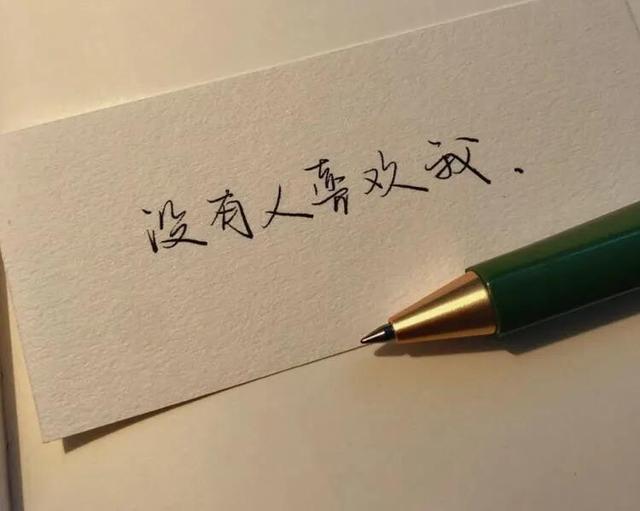 没有人喜欢我.